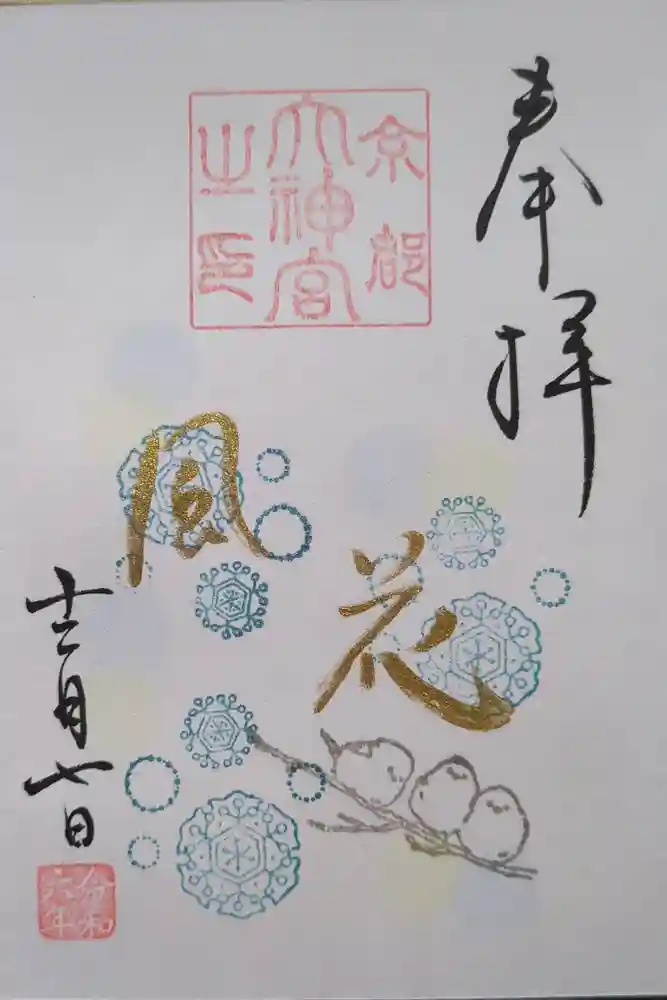 奉拝
京都
大神宮
之印
風花
十二月七日
令和
六年